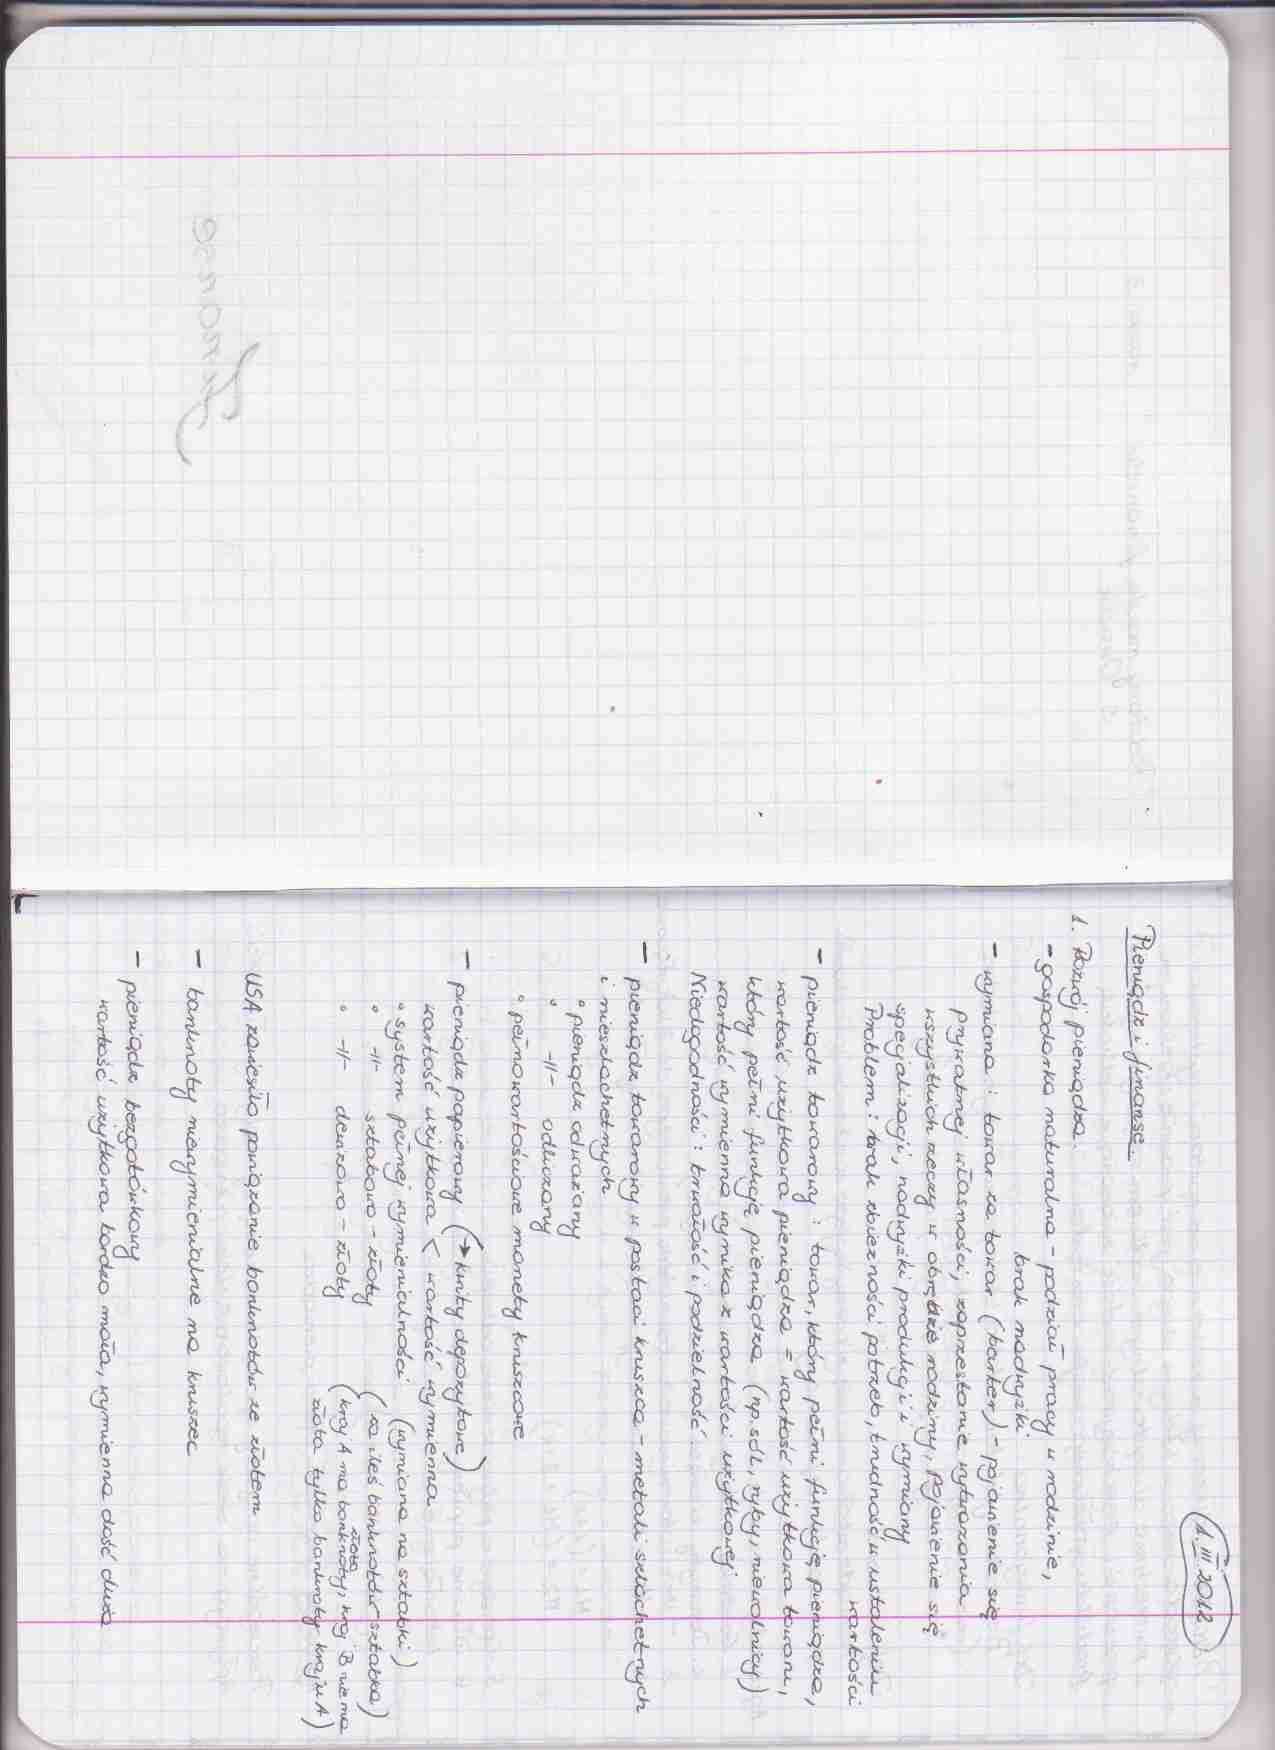 1. III 2012
Pieniądz i finanse
1. Rozwój pieniądza
- gospodarka naturalna - podział pracy w rodzinie,
brak nadwyżki
- wymiana : towar za towar (barter) - pojawienie się
prywatnej własności, zaprzestanie wytwarzania
wszystkich rzeczy w obrębie rodziny, pojawienie się
specjalizacji, nadwyżki produkcji i wymiany
Problem : brak zbieżności potrzeb, trudność w ustaleniu
wartości
- pieniądz towarowy : towar, który pełni funkcję pieniądza,
wartość użytkowa pieniądza = wartość użytkowa towaru,
który pełni funkcję pieniądza (np. sól, ryby, niewolnicy)
wartość wymienna wynika z wartości użytkowej
Niedogodności : trwałość i podzielność
- pieniądz towarowy w postaci kruszca - metali szlachetnych
i nieszlachetnych
° pieniądz odważany
° -||- odliczany
° pełnowartościowe monety kruszcowe
- pieniądz papierowy (→ kwity depozytowe)
wartość użytkowa < wartość wymienna
° system pełnej wymienialności (wymiana na sztabki)
° -||- sztabowo - złoty (za ileś banknotów sztabka)
° -||- dewizowo - złoty (kraj A ma banknoty, kraj B nie ma
złoto
złota tylko banknoty kraju A)
USA zawiesiło powiązanie banknotów ze złotem
- banknoty niewymienialne na kruszec
- pieniądz bezgotówkowy
wartość użytkowa bardzo mała, wymienna dość duża